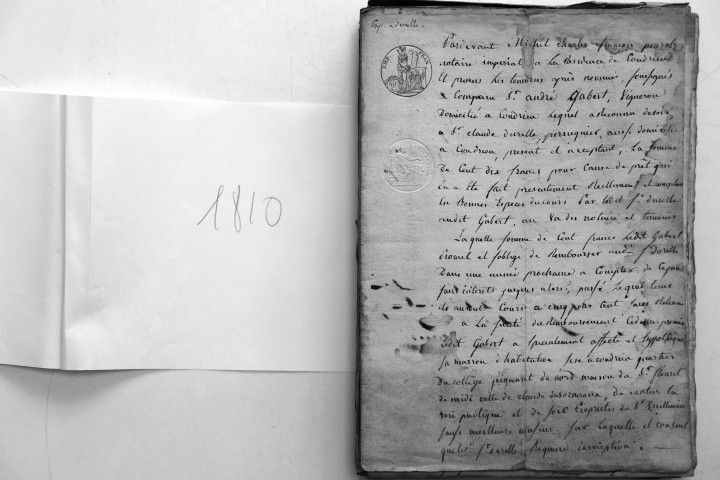 1810
Pardevant Michel Charles françois
notaire imperial a La Residence de Condrieu
Et presens Les temoins après nommés, soussignés
a Comparu Sr. andré Gabert, Vigneron
Domicilié a Condrieu Lequel a Reconnu devoir
a Sr. claude durelle, perruquier, aussi domicilié
a Condrieu, present et acceptant, La somme
de Cent dix francs pour Cause de prêt qui
lui a Eté fait presentement Reellement et
En Bonnes Especes du cours Par led. Sr. durelle
audit Gabert, au Vu des notaire et temoins
Laquelle somme de Cent francs Ledit Gabert
promet et s'oblige de Rembourser audit Sr. durelle
Dans une année prochaine a Compter de ce jour
sans interets jusques alors, passé Lequel tems
ils auront Cours a cinq pour Cent sans Retenue
a La sureté du Remboursement
Ledit Gabert a specialement affecté et hypothéqué
sa maison d'habitation sise a condrieu quartier
Du college joignant du nord maison du Sr.
de midi celle de
voie publique et de soir proprieté du Sr.
sauf meilleurs confins, sur Laquelle il consent
que led. Sr. durelle Requiere inscription. —